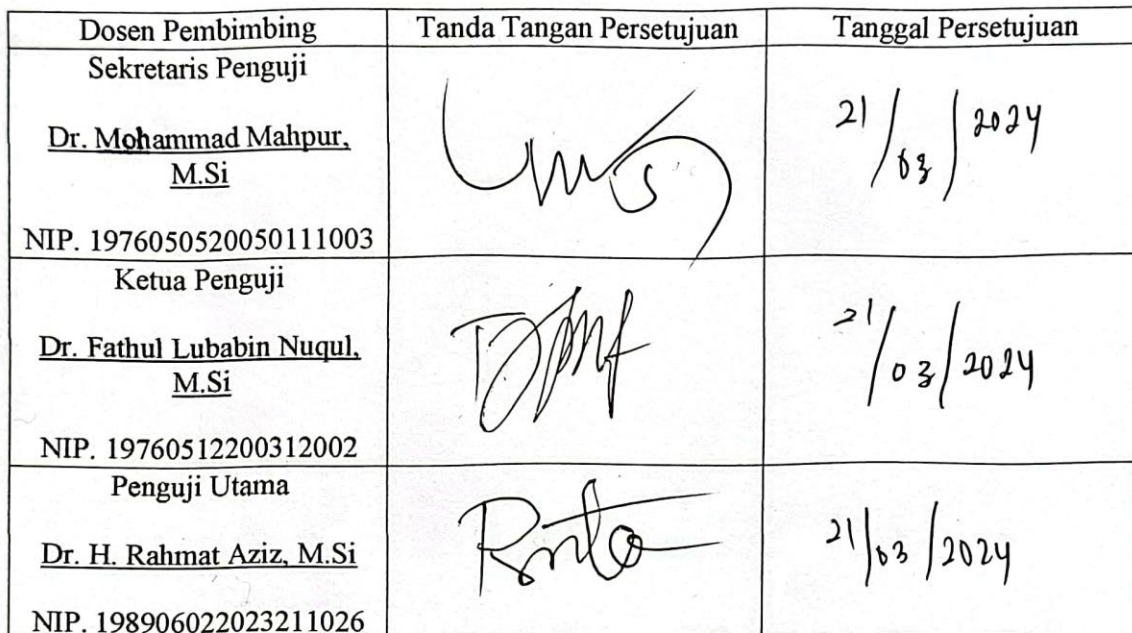 Dosen Pembimbing Tanda Tangan Persetujuan Tanggal Persetujuan
Sekretaris Penguji
Dr. Mohammad Mahpur,
M.Si
21/03/2024
NIP. 1976050520050111003
Ketua Penguji
Dr. Fathul Lubabin Nuqul,
M.Si
21/03/2024
NIP. 19760512200312002
Penguji Utama
Dr. H. Rahmat Aziz, M.Si
21/03/2024
NIP. 198906022023211026